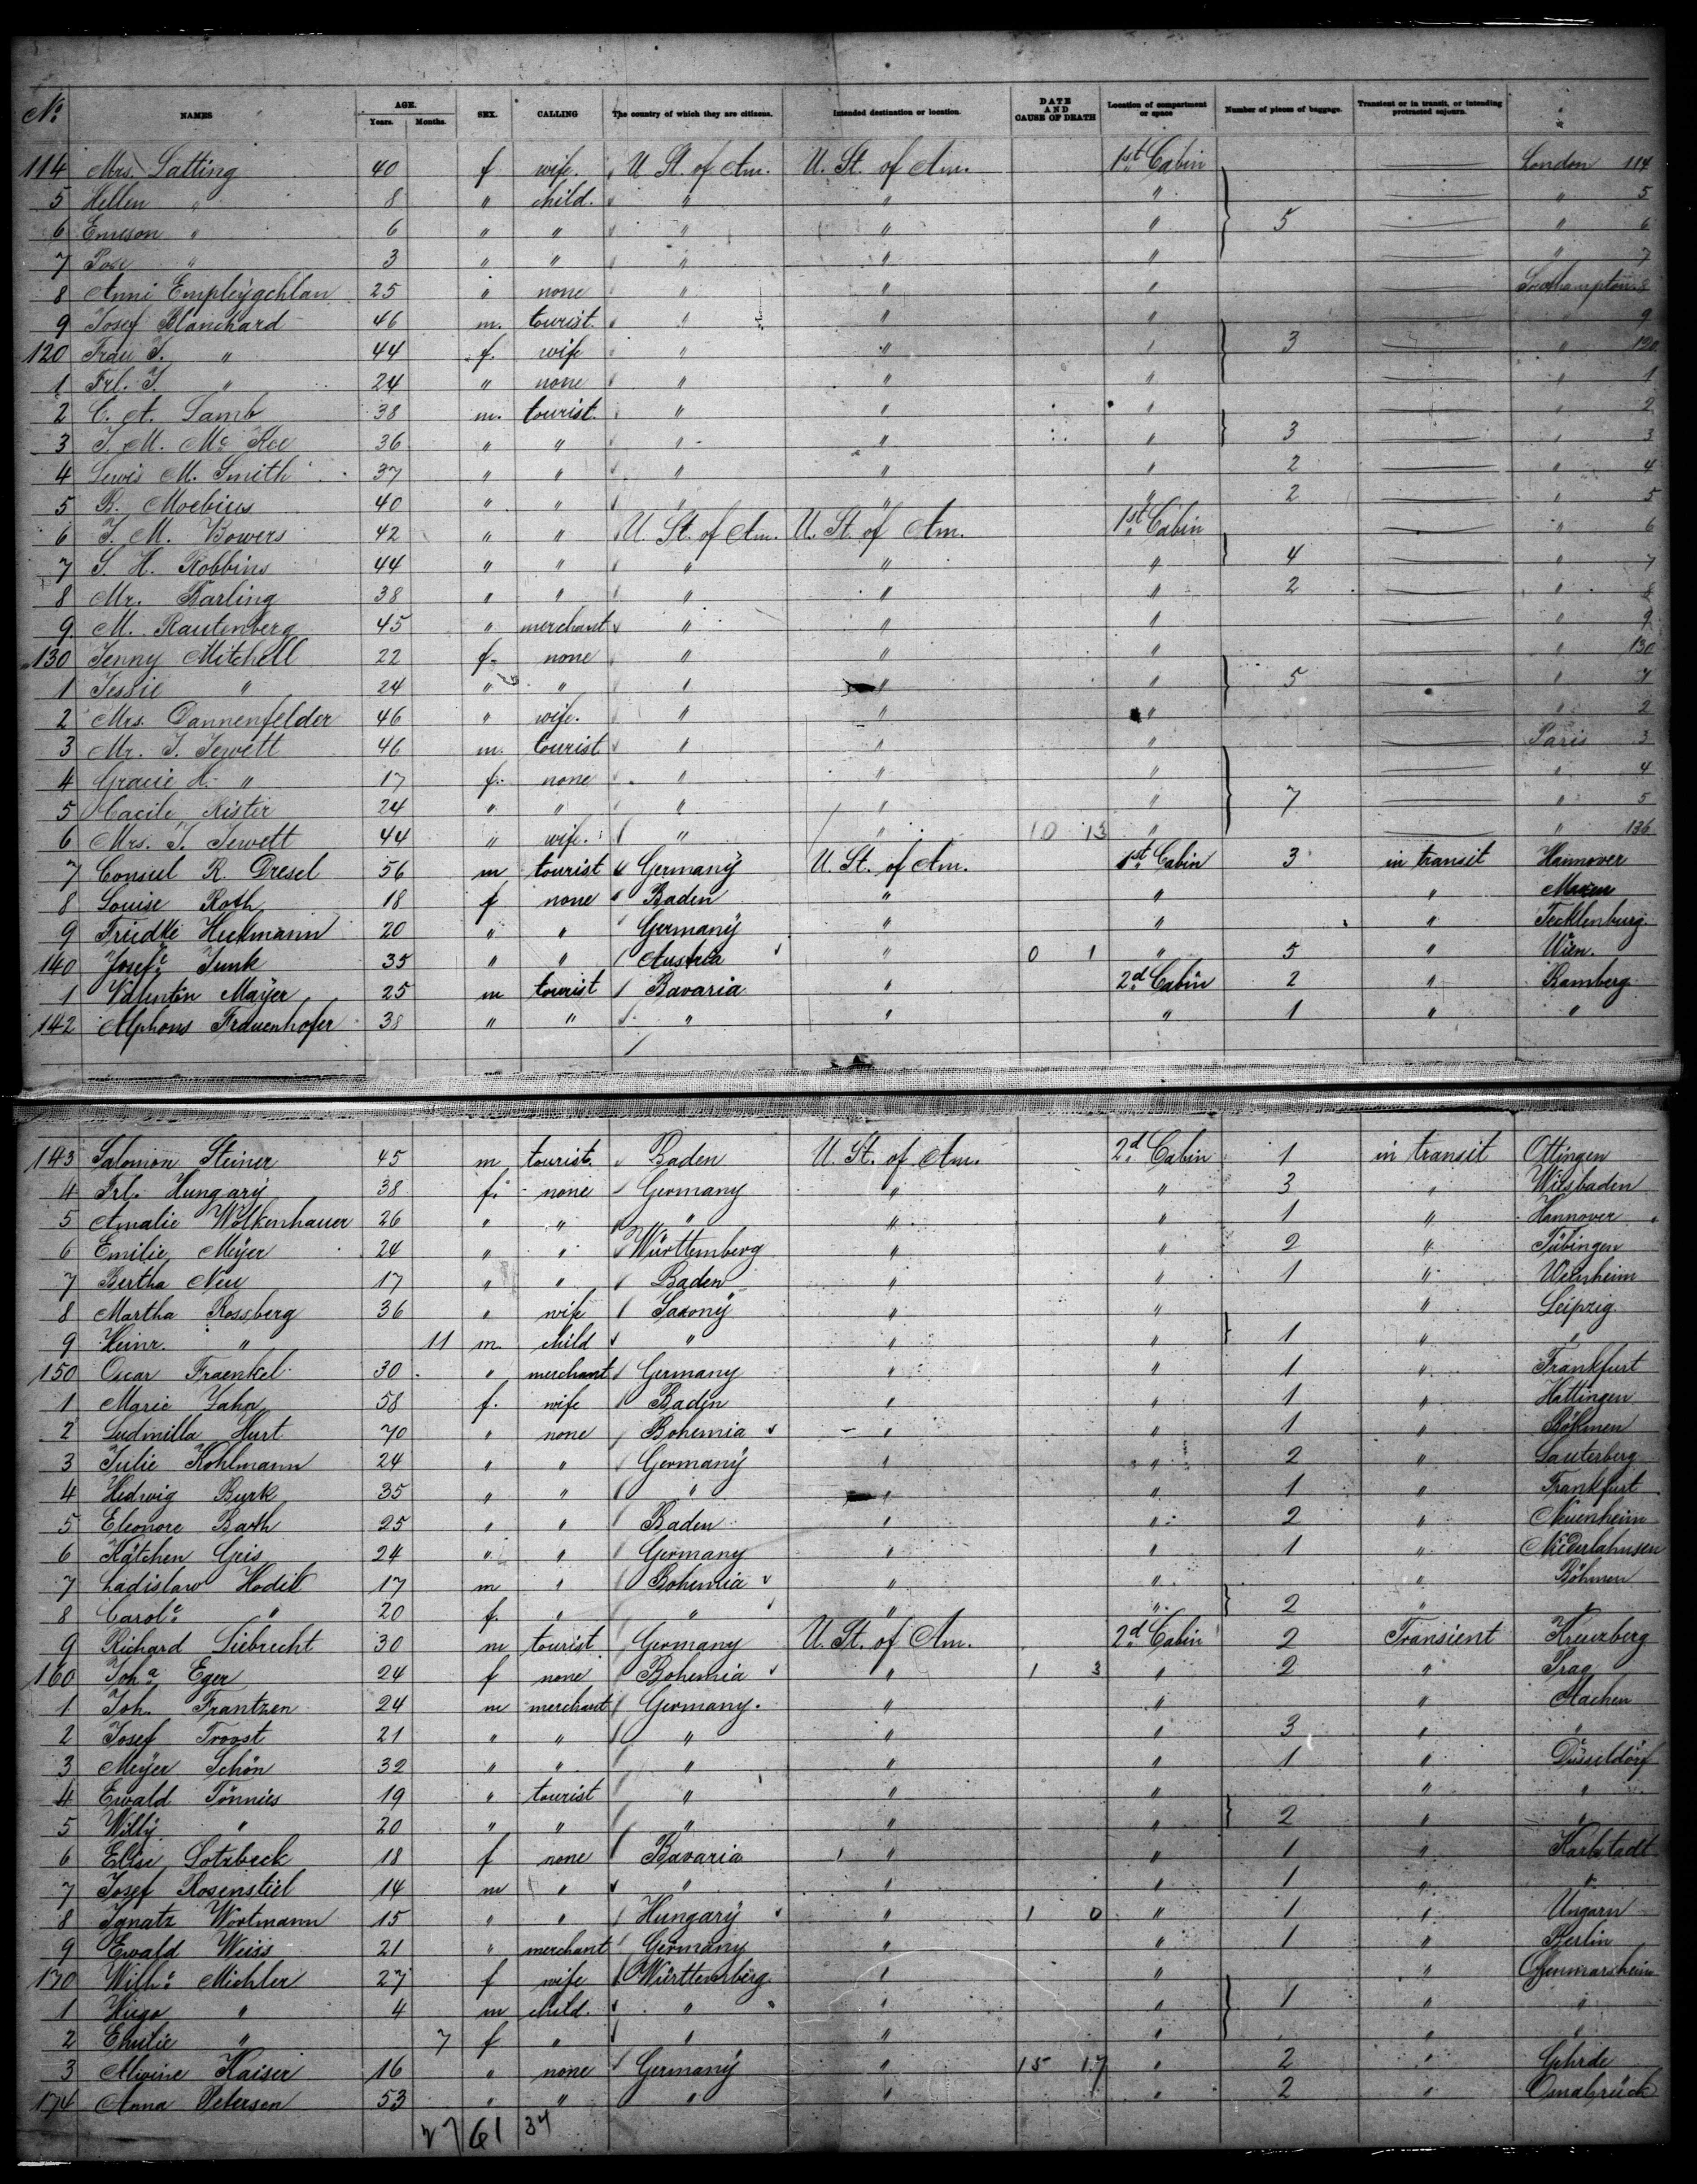 No. NAMES AGE. Years. Months. SEX. CALLING The country of which they are citizens. Intended destination or location. DATE AND CAUSE OF DEATH Location of compartment or space Number of pieces of baggage. Transient or in transit, or intending protracted sojourn.
114 Mrs. Latting 40 f wife. U. St. of Am. U. St. of Am. 1st Cabin London 114
5 Hellen " 8 " child. " " " " 5
6 Emerson " 6 " " " " " 5 " 6
7 " 3 " " " " " " 7
8 Anni 25 " none " " " Southampton 8
9 Josef Blanchard 46 m. tourist. " " " " 9
120 Frau J. " 44 f. wife " " " 3 " 120
1 Frl. J. " 24 " none " " " " 1
2 C. A. Lamb 38 m. tourist. " " " " 2
3 J. M. Mc Kee 36 " " " " " 3 " 3
4 Lewis M. Smith 37 " " " " " 2 " 4
5 R. Moebius 40 " " " " " 2 " 5
6 J. M. Bowers 42 " " U. St. of Am. U. St. of Am. 1st Cabin " 6
7 S. H. Robbins 44 " " " " " 4 " 7
8 Mr. Barling 38 " " " " " 2 " 8
9 M. Rautenberg 45 " merchant " " " " 9
130 Jenny Mitchell 22 f. none " " " " 130
1 Jessie " 24 " " " " " 5 "
2 Mrs. Dannenfelder 46 " wife. " " " " 2
3 Mr. J. Jewett 46 m. tourist " " " Paris 3
4 Gracie H. " 17 f. none " " " " 4
5 Cacile Rister 24 " " " " " 7 " 5
6 Mrs. J. Jewett 44 " wife. " " 10 13 " " 136
7 Consul R. Dresel 56 m tourist Germany U. St. of Am. 1st Cabin 3 in transit Hannover
8 Louise Roth 18 f none Baden " " "
9 Friedke Heekmann 20 " " Germany " " " Tecklenburg
140 Josefe Junk 35 " " Austria " 0 1 " 5 " Wien.
1 Valentin Mayer 25 m tourist Bavaria " 2d Cabin 2 " Bamberg
142 Alphons Frauenhofer 38 " " " " " 1 " "
143 Salomon Steiner 45 m tourist. Baden U. St. of Am. 2d Cabin 1 in transit Ottingen
4 Frl. Hungary 38 f. none Germany " " 3 " Wiesbaden
5 Amalie Wolkenhauer 26 " " " " " 1 " Hannover
6 Emilie Meyer 24 " " Württemberg " " 2 " Tübingen
7 Bertha Neu 17 " " Baden " " 1 " Weinheim
8 Martha Rossberg 36 " wife Saxony " " " Leipzig
9 Heinr. " 11 m. child " " " 1 " "
150 Oscar Fraenkel 30 " merchant Germany " " 1 " Frankfurt
1 Marie Jahn 58 f. wife Baden " " 1 " Hattingen
2 Ludmilla Hurt 70 " none Bohemia " " 1 " Böhmen
3 Julie Kohlmann 24 " " Germany " " 2 " Lauterberg
4 Hedwig Burk 35 " " " " " 1 " Frankfurt
5 Eleonore Barth 25 " " Baden " " 2 " Neuenheim
6 Kätchen Geis 24 " " Germany " " 1 "
7 Ladislaw Hodik 17 m " Bohemia " " " Böhmen
8 Carole " 20 f. " " " " 2 " "
9 Richard Liebrecht 30 m tourist Germany U. St. of Am. 2d Cabin 2 Transient Kreuzberg
160 Joha Eger 24 f none Bohemia " 1 3 " 2 " Prag
1 Joh. Frantzen 24 m merchant Germany. " " " Aachen
2 Josef Troost 21 " " " " " 3 " "
3 Meyer Schön 32 " " " " " 1 " Düsseldorf
4 Ewald Tönnies 19 " tourist " " " " "
5 Willy " 20 " " " " " 2 " "
6 Elise Lotzbeck 18 f none Bavaria " " 1 " Karlstadt
7 Josef Rosenstiel 14 m " " " " 1 " "
8 Ignatz Wortmann 15 " " Hungary " 1 0 " 1 " Ungarn
9 Ewald Weiss 21 " merchant Germany " " 1 " Berlin
170 Wilhe Michler 27 f wife Württemberg " " "
1 Hugo " 4 m child. " " " 1 " "
2 Emilie " 7 f " " " " " "
3 Alwine Kaiser 16 " none Germany " 15 17 " 2 " Gehrde
174 Anna Petersen 53 " " " " " 2 " Osnabrück
27 61 34